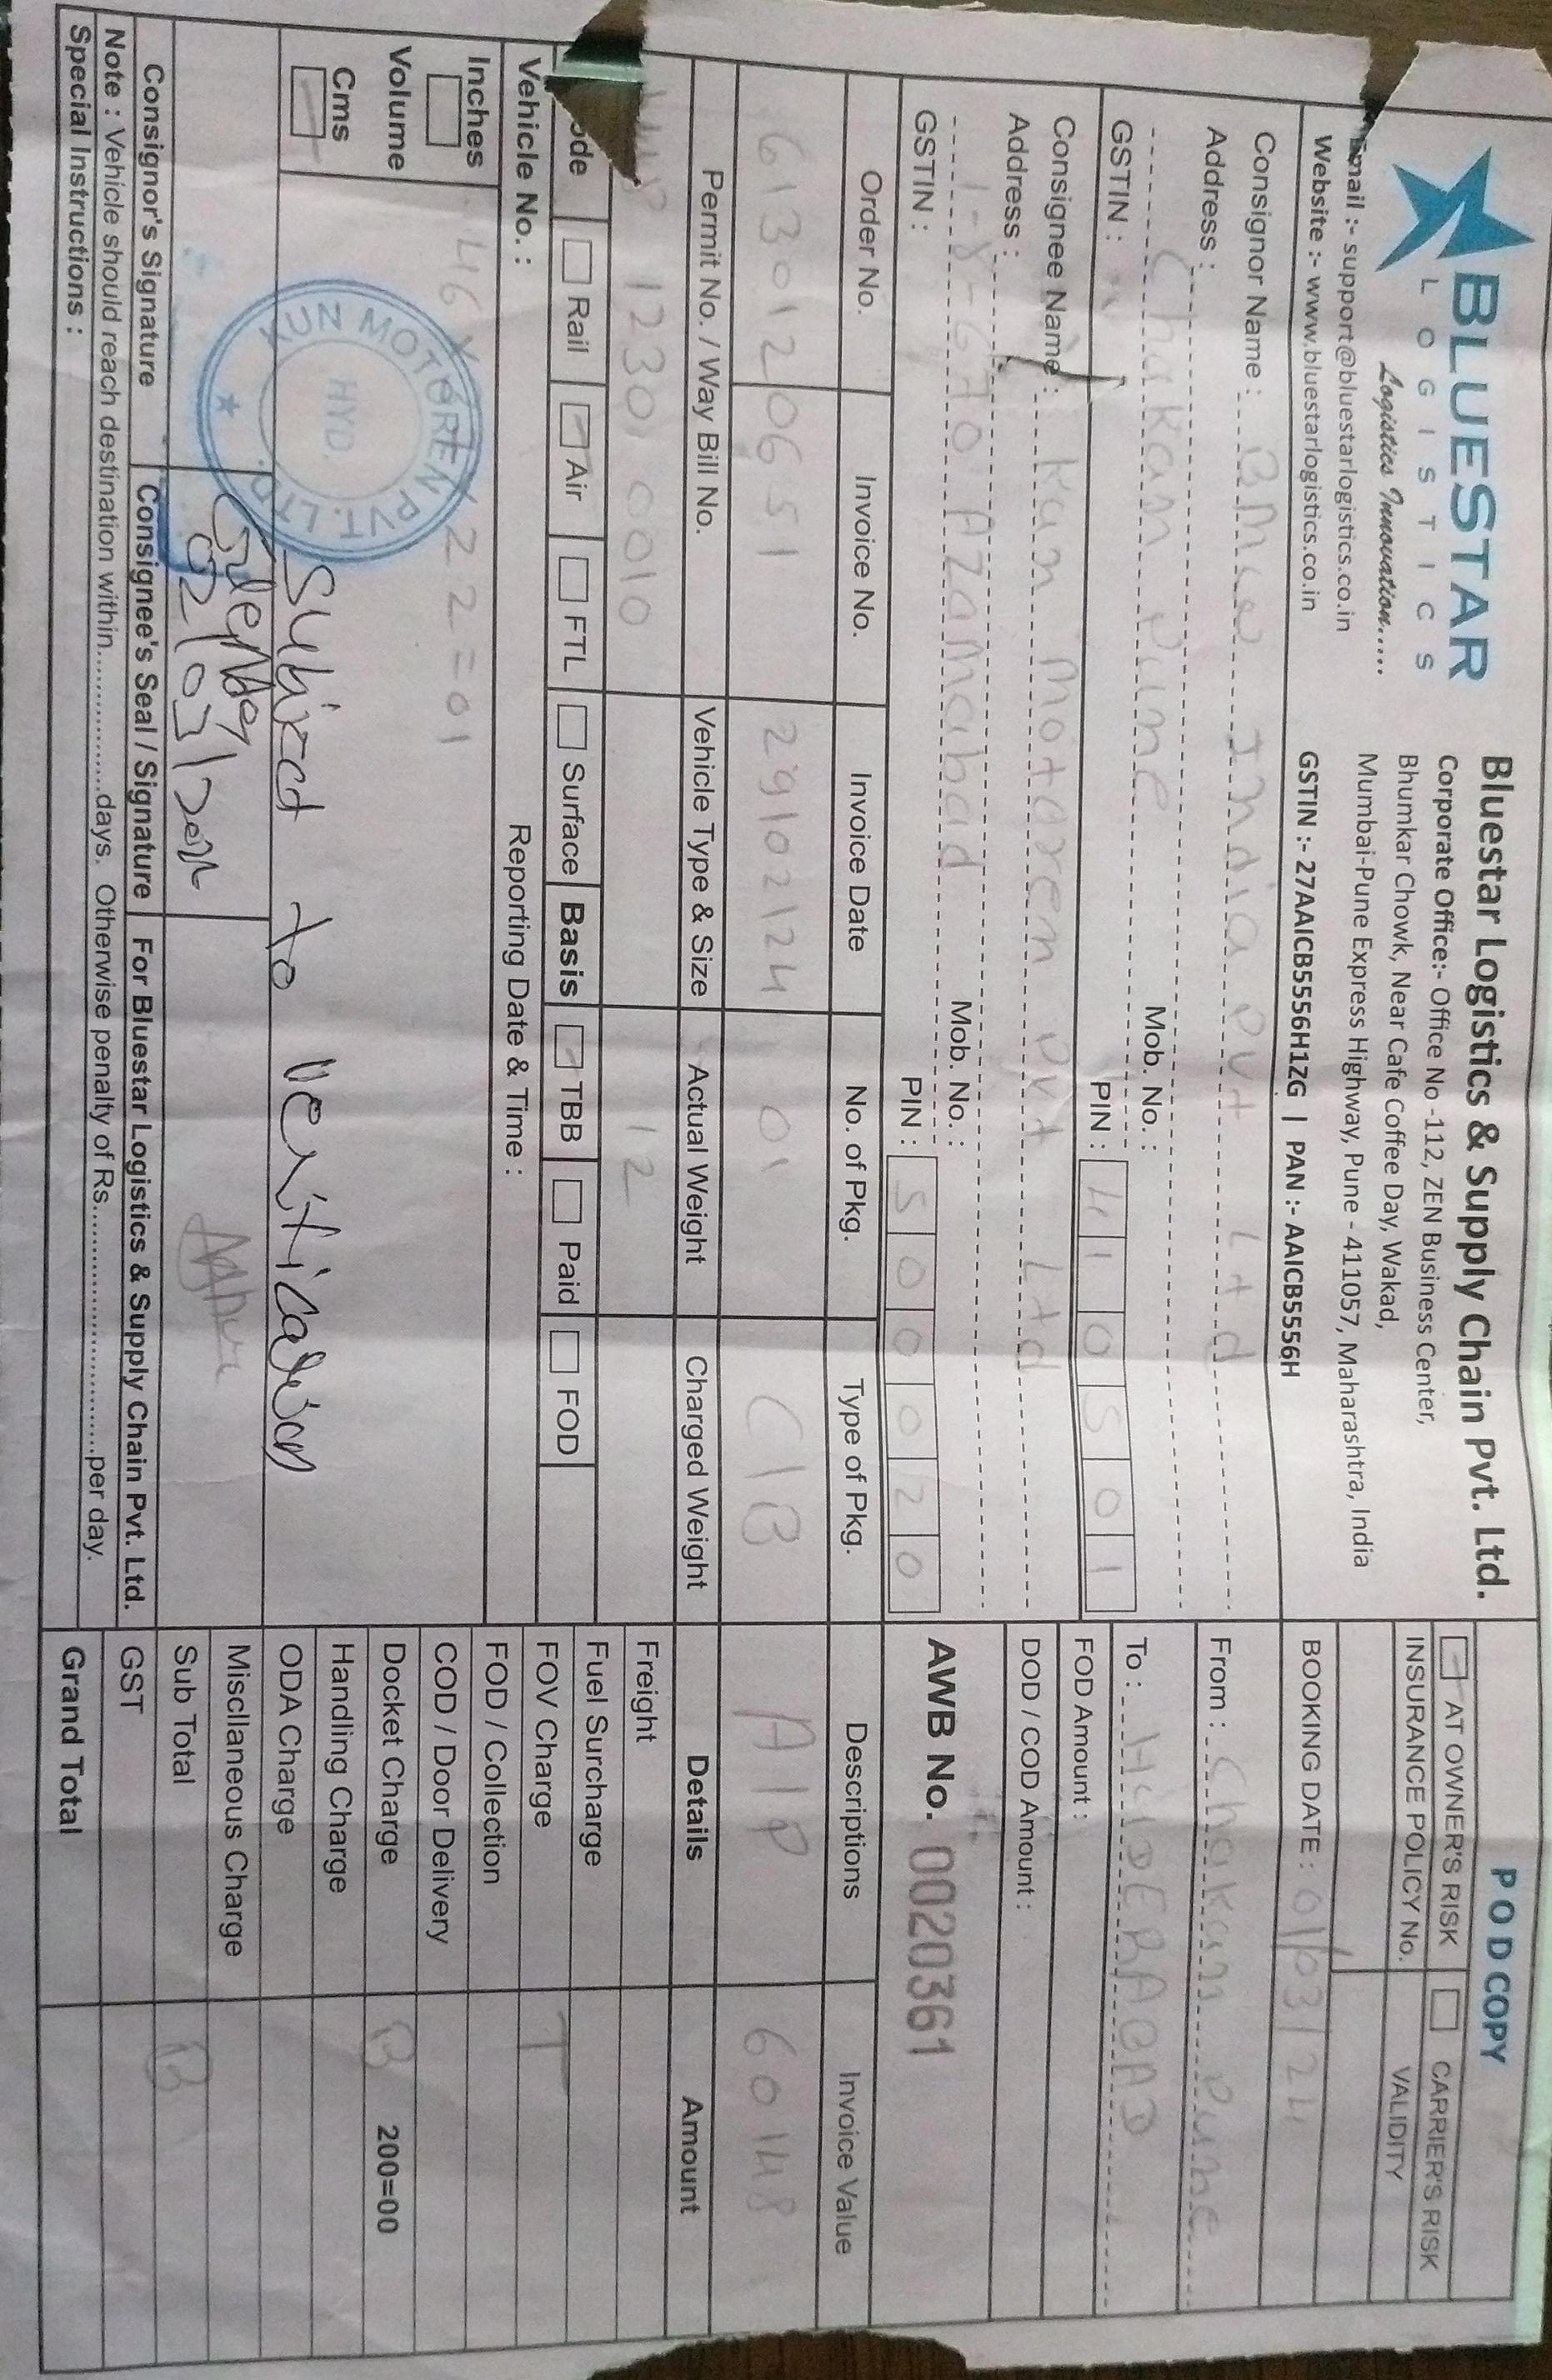 BLUESTAR
LOGISTICS
Logistics Innovation.....
Email :- support@bluestarlogistics.co.in
Website :- www.bluestarlogistics.co.in
Bluestar Logistics & Supply Chain Pvt. Ltd.
Corporate Office:- Office No -112, ZEN Business Center,
Bhumkar Chowk, Near Cafe Coffee Day, Wakad,
Mumbai-Pune Express Highway, Pune - 411057, Maharashtra, India
GSTIN :- 27AAICB5556H1ZG | PAN :- AAICB5556H
POD COPY
AT OWNER'S RISK CARRIER'S RISK
INSURANCE POLICY No. VALIDITY
BOOKING DATE : 01/03/24
Consignor Name : BMW India Pvt Ltd
Address :
Chakan Pune Mob. No. :
GSTIN : PIN : 410501
From : Chakan Pune
To : HYDERABAD
FOD Amount :
DOD / COD Amount :
Consignee Name : Kun Motoren Pvt Ltd
Address :
1-8-670 Azamabad Mob. No. :
GSTIN : PIN : 500020
AWB No. 0020361
Order No. Invoice No. Invoice Date No. of Pkg. Type of Pkg. Descriptions Invoice Value
6130120651 29/02/24 01 C/B A/P 60148
Permit No. / Way Bill No. Vehicle Type & Size Actual Weight Charged Weight Details Amount
12301 0010 12
Freight
Fuel Surcharge
FOV Charge T
FOD / Collection
COD / Door Delivery
Docket Charge B 200=00
Handling Charge
ODA Charge
Miscllaneous Charge
Sub Total B
GST
Grand Total
ode Rail Air FTL Surface Basis TBB Paid FOD
Vehicle No. : Reporting Date & Time :
Inches
Volume
Cms
46 X X 22 = 01
KUN MOTOREN PVT. LTD.
HYD.
Subject to Verification
02/03/2024
Consignor's Signature Consignee's Seal / Signature For Bluestar Logistics & Supply Chain Pvt. Ltd.
Note : Vehicle should reach destination within.................days. Otherwise penalty of Rs..............................per day.
Special Instructions :